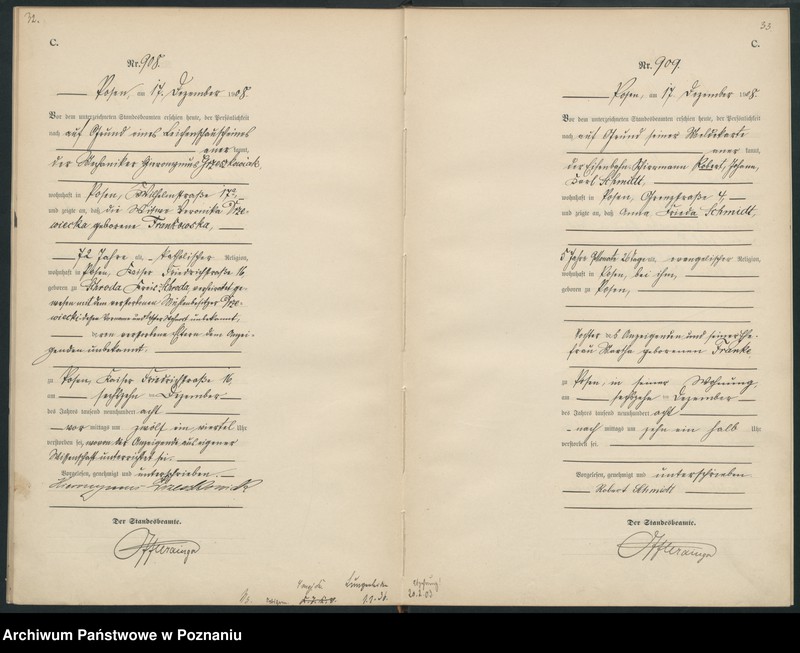 32.
C.
Nr. 908.
Posen, am 17. Dezember 1908.
Vor dem unterzeichneten Standesbeamten erschien heute, der Persönlichkeit
nach auf Grund eines Leichenschauscheines
kannt,
der Mechaniker Hieronymus
wohnhaft in Posen, Wilhelmstraße 17
und zeigte an, daß die Witwe Veronika
geborene Frankowska,
72 Jahre alt, katholischer Religion,
wohnhaft in Posen, Kaiser Friedrichstraße 16
geboren zu Schroda Kreis Schroda, verheiratet ge-
wesen mit dem verstorbenen Mühlenbesitzer
deren verstorbene Eltern dem Anzei-
genden unbekannt,
zu Posen, Kaiser Friedrichstraße 16,
am sechszehn ten Dezember
des Jahres tausend neunhundert acht
vor mittags um zwölf ein viertel Uhr
verstorben sei, wovon der Anzeigende aus eigener
Wissenschaft unterrichtet sei.
Vorgelesen, genehmigt und unterschrieben.
Hieronymus
Der Standesbeamte.
33
C.
Nr. 909
Posen, am 17. Dezember 1908.
Vor dem unterzeichneten Standesbeamten erschien heute, der Persönlichkeit
nach auf Grund seiner Meldekarte
kannt,
der Eisenbahn-Schirrmann Robert, Johann,
Karl Schmidt,
wohnhaft in Posen, Grenzstraße 4,
und zeigte an, daß Anna Frieda Schmidt,
5 Jahre Monate 26 Tage alt, evangelischer Religion,
wohnhaft in Posen, bei ihm,
geboren zu Posen,
Tochter des Anzeigenden und seiner Ehe-
frau Martha geborenen Franke
zu Posen, in seiner Wohnung,
am sechszehn ten Dezember
des Jahres tausend neunhundert acht
nach mittags um zehn ein halb Uhr
verstorben sei.
Vorgelesen, genehmigt und unterschrieben
Robert Schmidt
Der Standesbeamte.
Archiwum Państwowe w Poznaniu